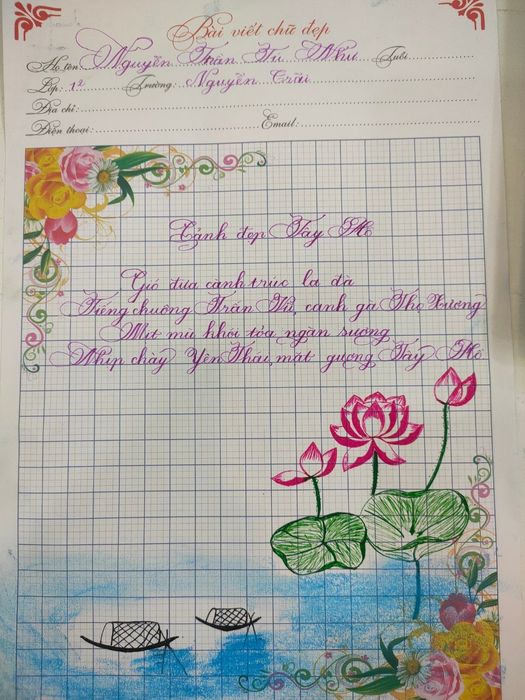 Bài viết chữ đẹp
Họ tên: Nguyễn Trần Tú Như Tuổi:
Lớp: 1² Trường: Nguyễn Trãi
Địa chỉ:
Điện thoại: Email:
Cảnh đẹp Tây Hồ
Gió đưa cành trúc la đà
Tiếng chuông Trấn Vũ, canh gà Thọ Xương
Mịt mù khói tỏa ngàn sương
Nhịp chày Yên Thái, mặt gương Tây Hồ